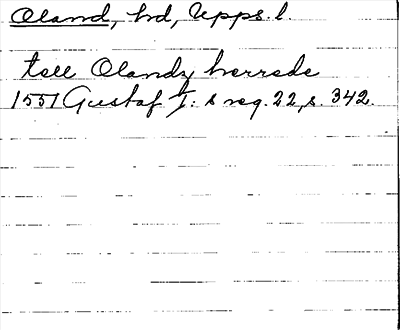 Oland, hd, Upps. l.
till Olandz herrede
1551 Gustaf I: s reg. 22, s. 342.